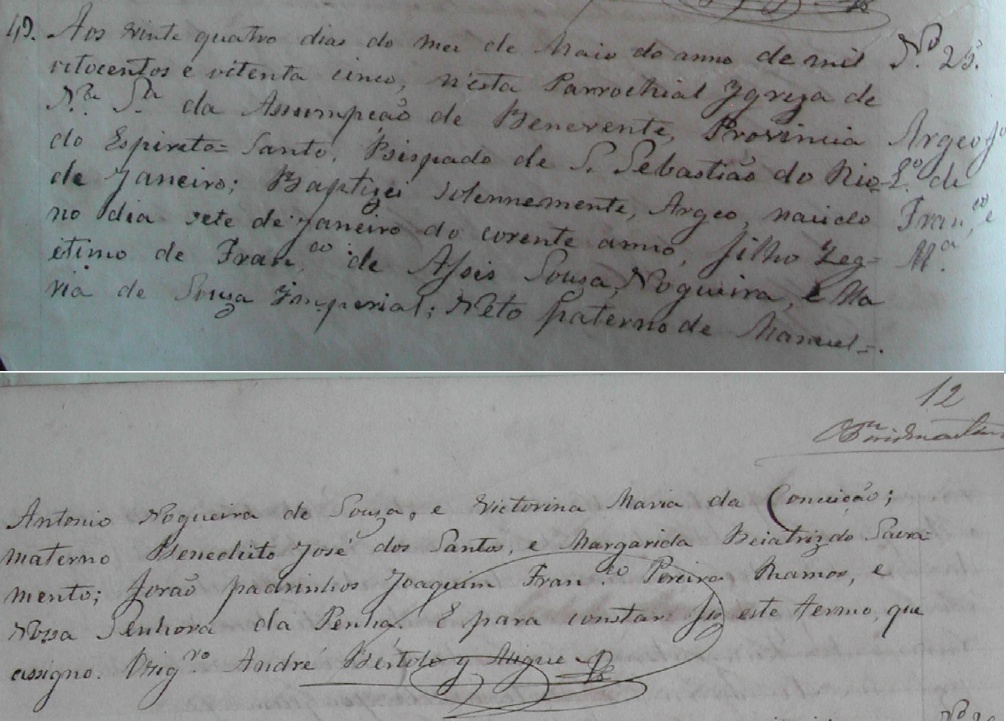 49. Aos vinte quatro dias do mez de Maio do anno de mil
oitocentos e oitenta cinco, n'esta Parrochial Ygreja de
N.ra S.ra da Assumpção de Benevente, Provincia
do Espireto=Santo, Bispado de S. Sebastião do Rio
de Janeiro; Baptizei solennemente, Argeo, nacido
no dia sete de Janeiro do corente anno, filho Leg=
itimo de Fran.co de Assis Sousa, Nogueira, e Ma
ria de Souza Imperial; Neto paterno de Manuel=.
Nº 25.
Argeo
L.º de
Fran.co, e
M.a
12
Antonio Nogueira de Souza, e Victorina Maria da Conceição;
materno Benedicto José dos Santos, e Margarida Beatriz do Sacra
mento; forão padrinhos Joaquim Fran.co Pereira Ramos, e
Nossa Senhora da Penha. E para constar fiz este termo, que
assigno. Vig.ro André Bertolo y Migue